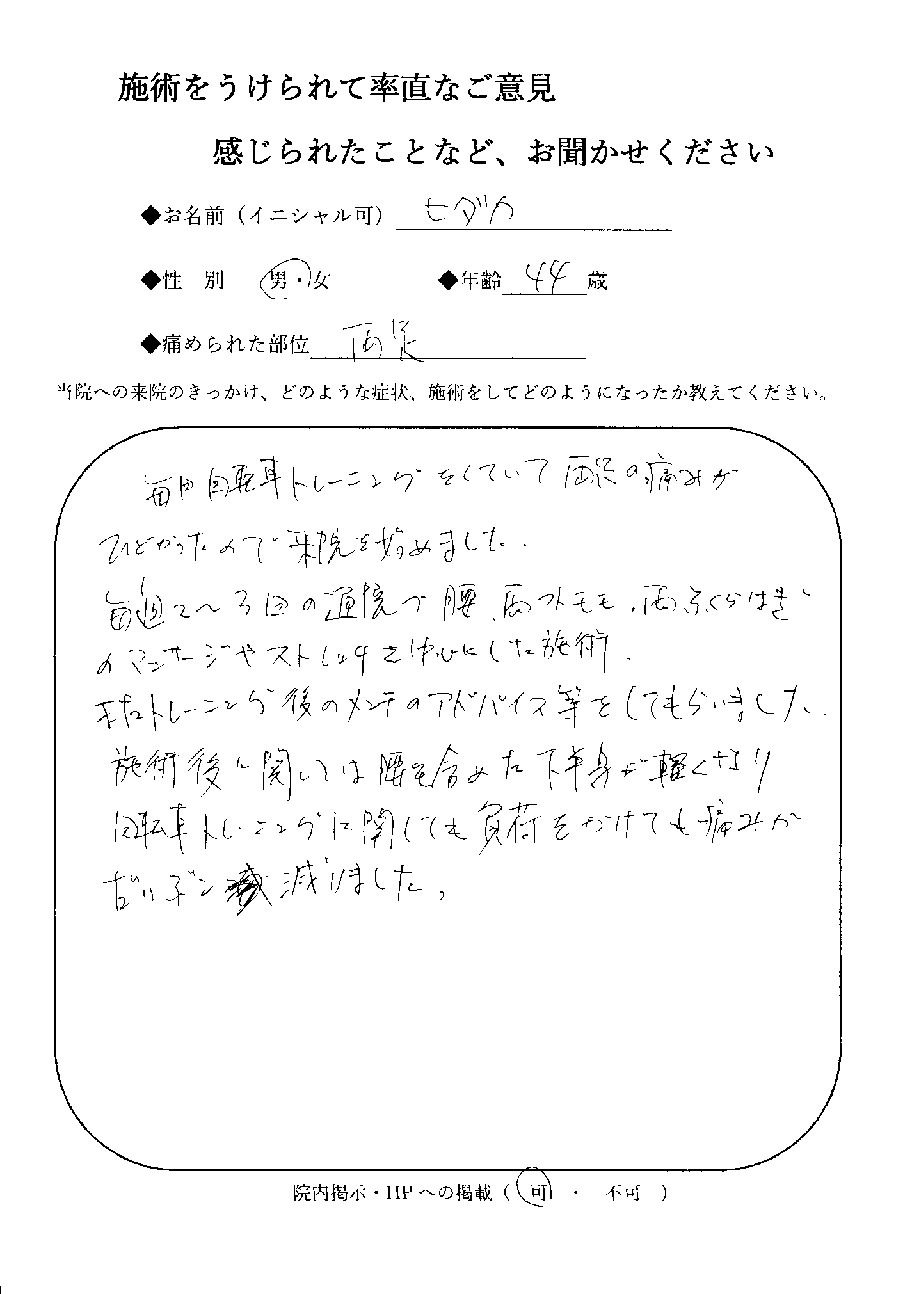 施術をうけられて率直なご意見
感じられたことなど、お聞かせください
◆お名前（イニシャル可） ヒダカ
◆性 別 男・女 ◆年齢 44 歳
◆痛められた部位 両足
当院への来院のきっかけ、どのような症状、施術をしてどのようになったか教えてください。
毎日自転車トレーニングをしていて両足の痛みが
ひどかったので来院を始めました.
毎週2〜3回の通院で腰、両外モモ、両ふくらはぎ
のマッサージやストレッチを中心にした施術.
またトレーニング後のメンテのアドバイス等をしてもらいました.
施術後に関しては腰を含めた下半身が軽くなり
自転車トレーニングに関しても負荷をかけても痛みが
だいぶン 減りました。
院内掲示・HPへの掲載（ 可 ・ 不可 ）